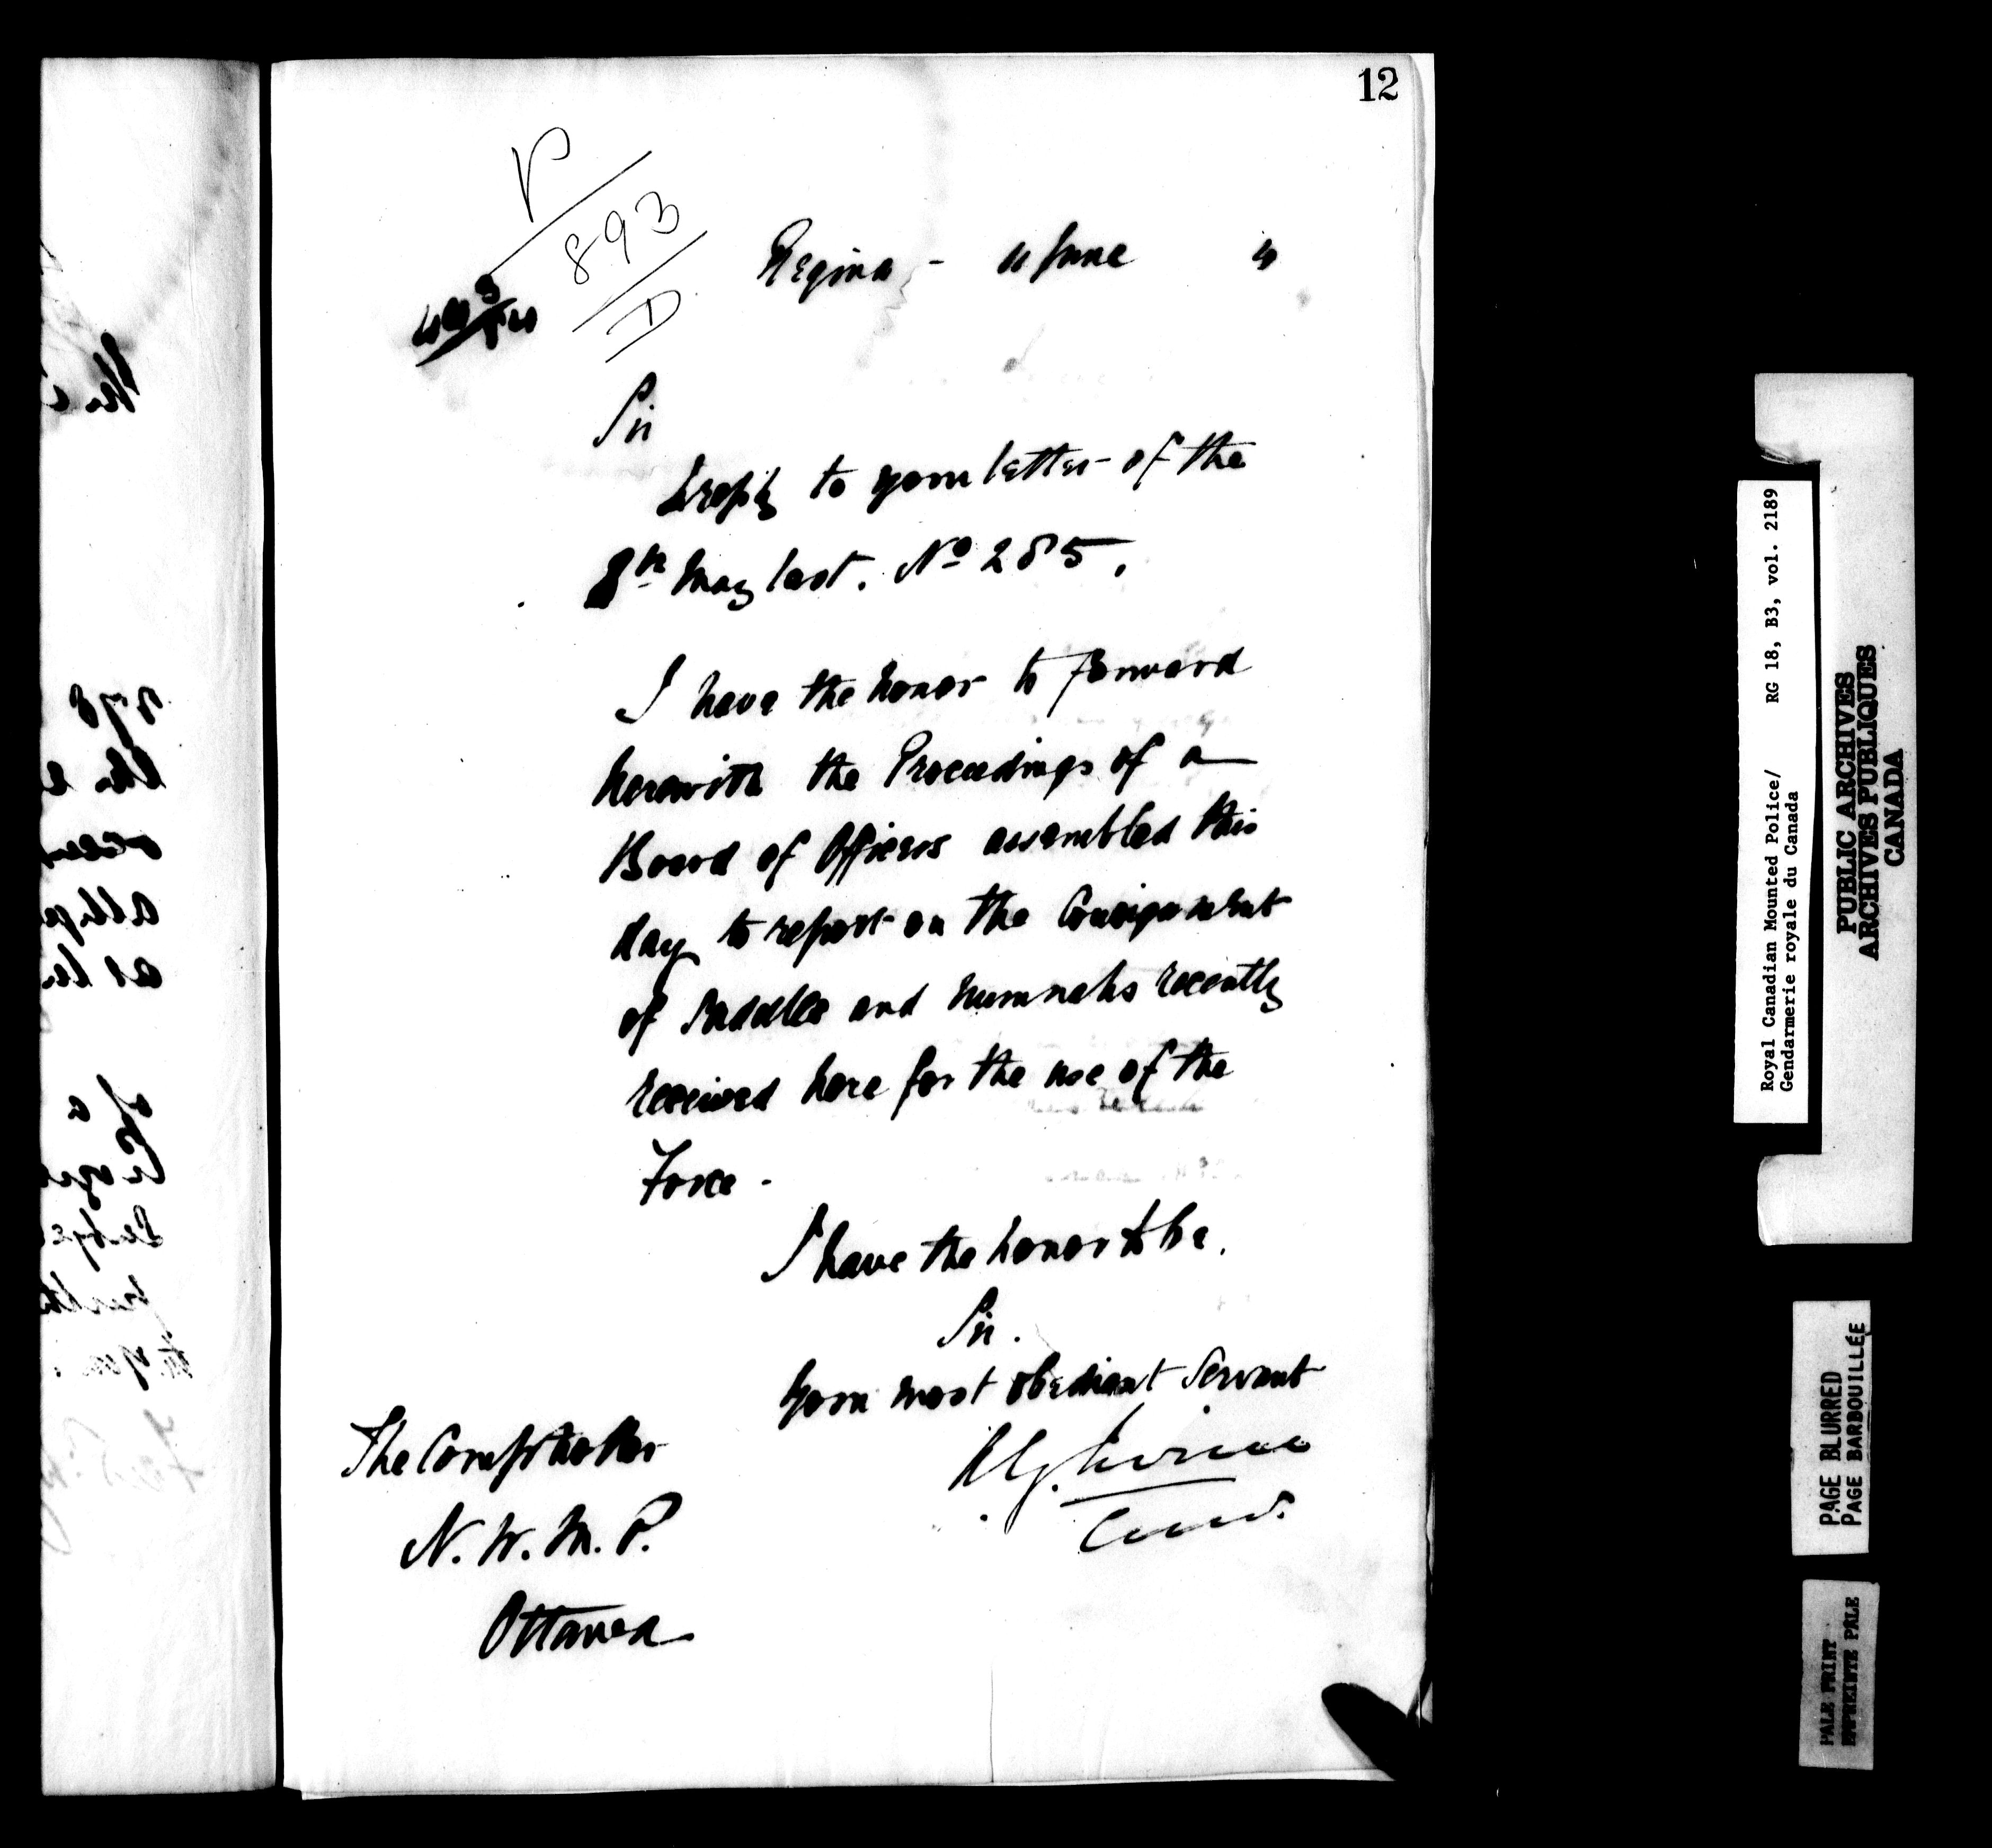 12
P
893
D
Regina - 11 June 4
Sir
In reply to your letter of the
8th May last. No 285.
I have the honor to forward
herewith the Proceedings of a
Board of Officers assembled this
day to report on the Consignment
of Saddles and numnahs recently
received here for the use of the
Force.
I have the honor to be.
Sir.
Your most obedient Servant
A G. Irvine
Comr.
The Comptroller
N. W. M. P.
Ottawa
Royal Canadian Mounted Police/ RG 18, B3, vol. 2189
Gendarmerie royale du Canada
PUBLIC ARCHIVES
ARCHIVES PUBLIQUES
CANADA
PAGE BLURRED
PAGE BARBOUILLÉE
PALE PRINT
EPREUVE PÂLE